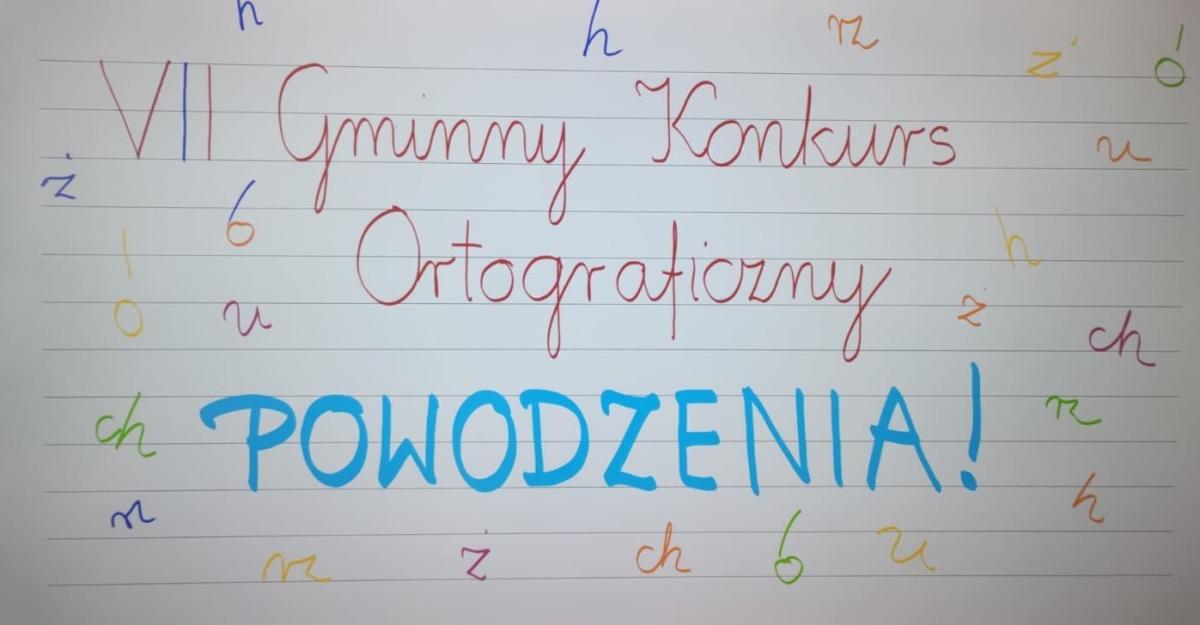 h h rz ż ó
VII Gminny Konkurs
u
ż
ó h
Ortograficzny
ó u ż
ch
ch POWODZENIA! rz
rz h
rz ż ch ó u